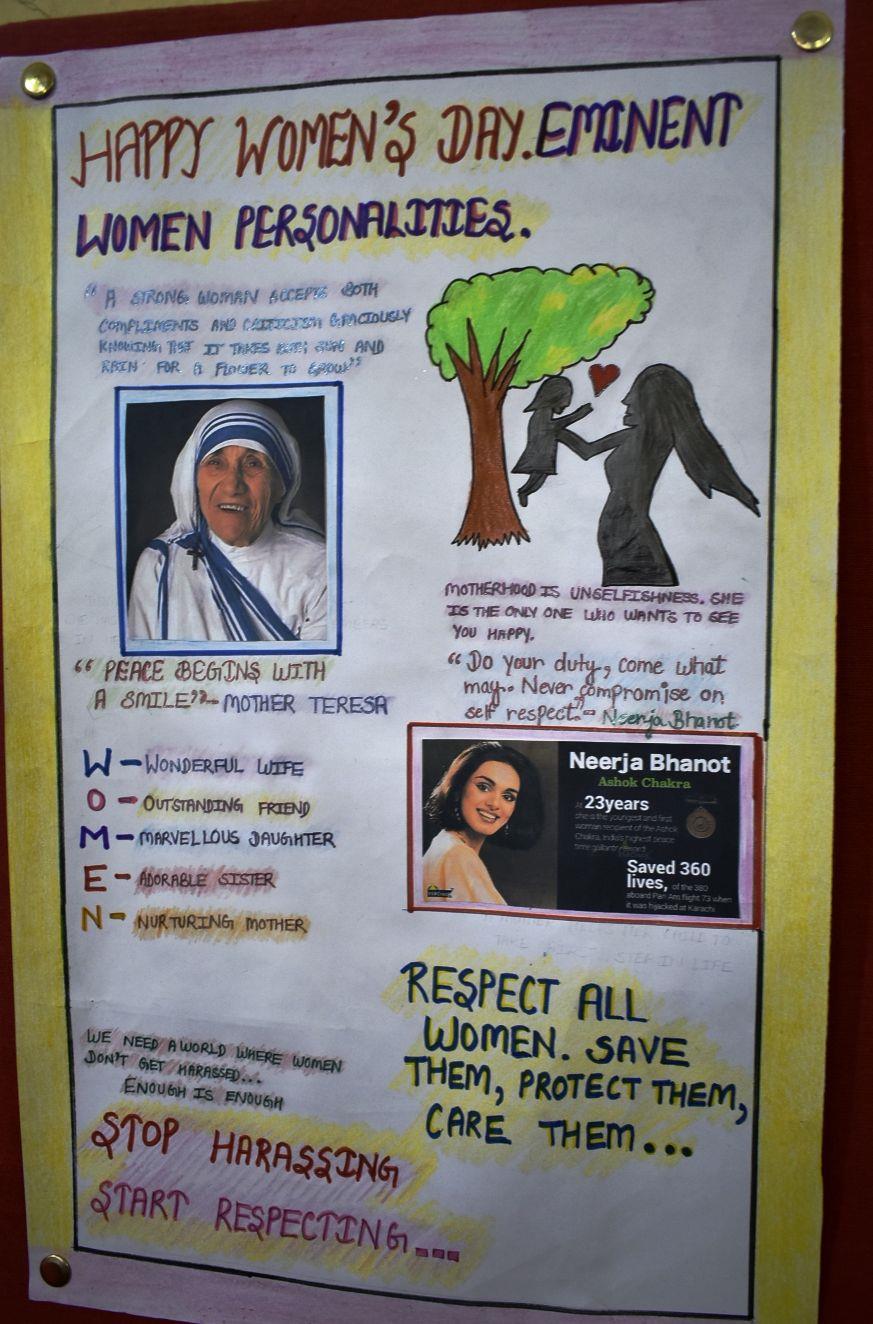 HAPPY WOMEN'S DAY. EMINENT
WOMEN PERSONALITIES.
"A STRONG WOMAN ACCEPTS BOTH
COMPLIMENTS AND CRITICISM GRACIOUSLY
KNOWING THAT IT TAKES BOTH SUN AND
RAIN FOR A FLOWER TO GROW"
"PEACE BEGINS WITH
A SMILE" - MOTHER TERESA
W - WONDERFUL WIFE
O - OUTSTANDING FRIEND
M - MARVELLOUS DAUGHTER
E - ADORABLE SISTER
N - NURTURING MOTHER
WE NEED A WORLD WHERE WOMEN
DON'T GET HARASSED...
ENOUGH IS ENOUGH
STOP HARASSING
START RESPECTING...
MOTHERHOOD IS UNSELFISHNESS. SHE
IS THE ONLY ONE WHO WANTS TO SEE
YOU HAPPY.
"Do your duty, come what
may.. Never compromise on
self respect." - Neerja Bhanot
Neerja Bhanot
Ashok Chakra
At 23years
she is the youngest and first
woman recipient of the Ashok
Chakra, India's highest peace
time gallantry award
Saved 360
lives, of the 380
aboard Pan Am flight 73 when
it was hijacked at Karachi
TAKE STEP IN LIFE
RESPECT ALL
WOMEN. SAVE
THEM, PROTECT THEM,
CARE THEM...